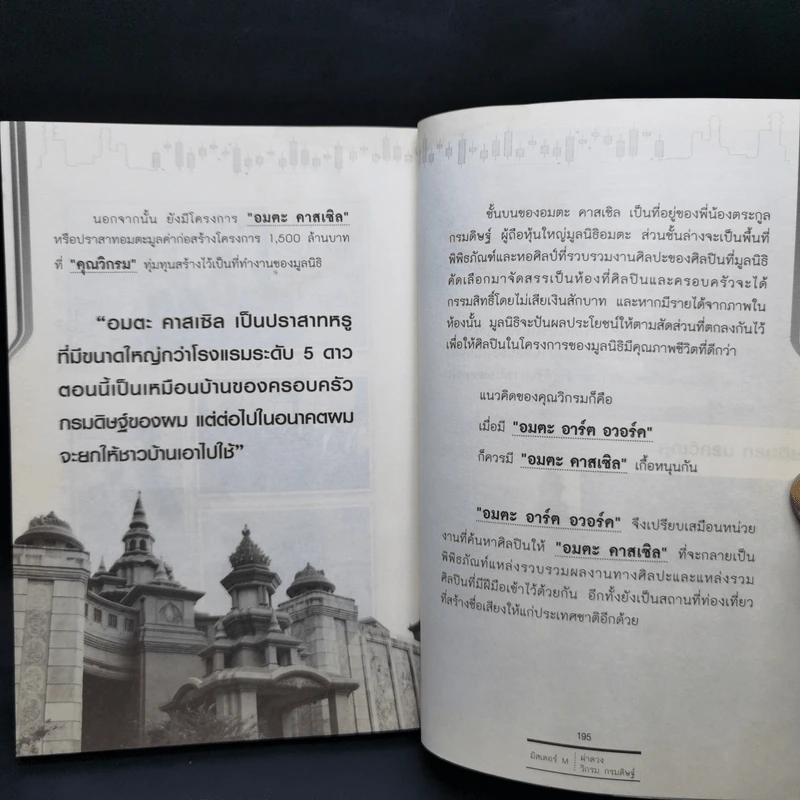 นอกจากนั้น ยังมีโครงการ "อมตะ คาสเซิล"
หรือปราสาทอมตะมูลค่าก่อสร้างโครงการ 1,500 ล้านบาท
ที่ "คุณวิกรม" ทุ่มทุนสร้างไว้เป็นที่ทำงานของมูลนิธิ
“อมตะ คาสเซิล เป็นปราสาทหรู
ที่มีขนาดใหญ่กว่าโรงแรมระดับ 5 ดาว
ตอนนี้เป็นเหมือนบ้านของครอบครัว
กรมดิษฐ์ของผม แต่ต่อไปในอนาคตผม
จะยกให้ชาวบ้านเอาไปใช้”
ชั้นบนของอมตะ คาสเซิล เป็นที่อยู่ของพี่น้องตระกูล
กรมดิษฐ์ ผู้ถือหุ้นใหญ่มูลนิธิอมตะ ส่วนชั้นล่างจะเป็นพื้นที่
พิพิธภัณฑ์และหอศิลป์ที่รวบรวมงานศิลปะของศิลปินที่มูลนิธิ
คัดเลือกมาจัดสรรเป็นห้องที่ศิลปินและครอบครัวจะได้
กรรมสิทธิ์โดยไม่เสียเงินสักบาท และหากมีรายได้จากภาพใน
ห้องนั้น มูลนิธิจะปันผลประโยชน์ให้ตามสัดส่วนที่ตกลงกันไว้
เพื่อให้ศิลปินในโครงการของมูลนิธิมีคุณภาพชีวิตที่ดีกว่า
แนวคิดของคุณวิกรมก็คือ
เมื่อมี "อมตะ อาร์ต อวอร์ด"
ก็ควรมี "อมตะ คาสเซิล" เกื้อหนุนกัน
"อมตะ อาร์ต อวอร์ด" จึงเปรียบเสมือนหน่วย
งานที่ค้นหาศิลปินให้ "อมตะ คาสเซิล" ที่จะกลายเป็น
พิพิธภัณฑ์แหล่งรวบรวมผลงานทางศิลปะและแหล่งรวม
ศิลปินที่มีฝีมือเข้าไว้ด้วยกัน อีกทั้งยังเป็นสถานที่ท่องเที่ยว
ที่สร้างชื่อเสียงให้แก่ประเทศชาติอีกด้วย
195
มิสเตอร์ M
ผ่าดวง
วิกรม กรมดิษฐ์